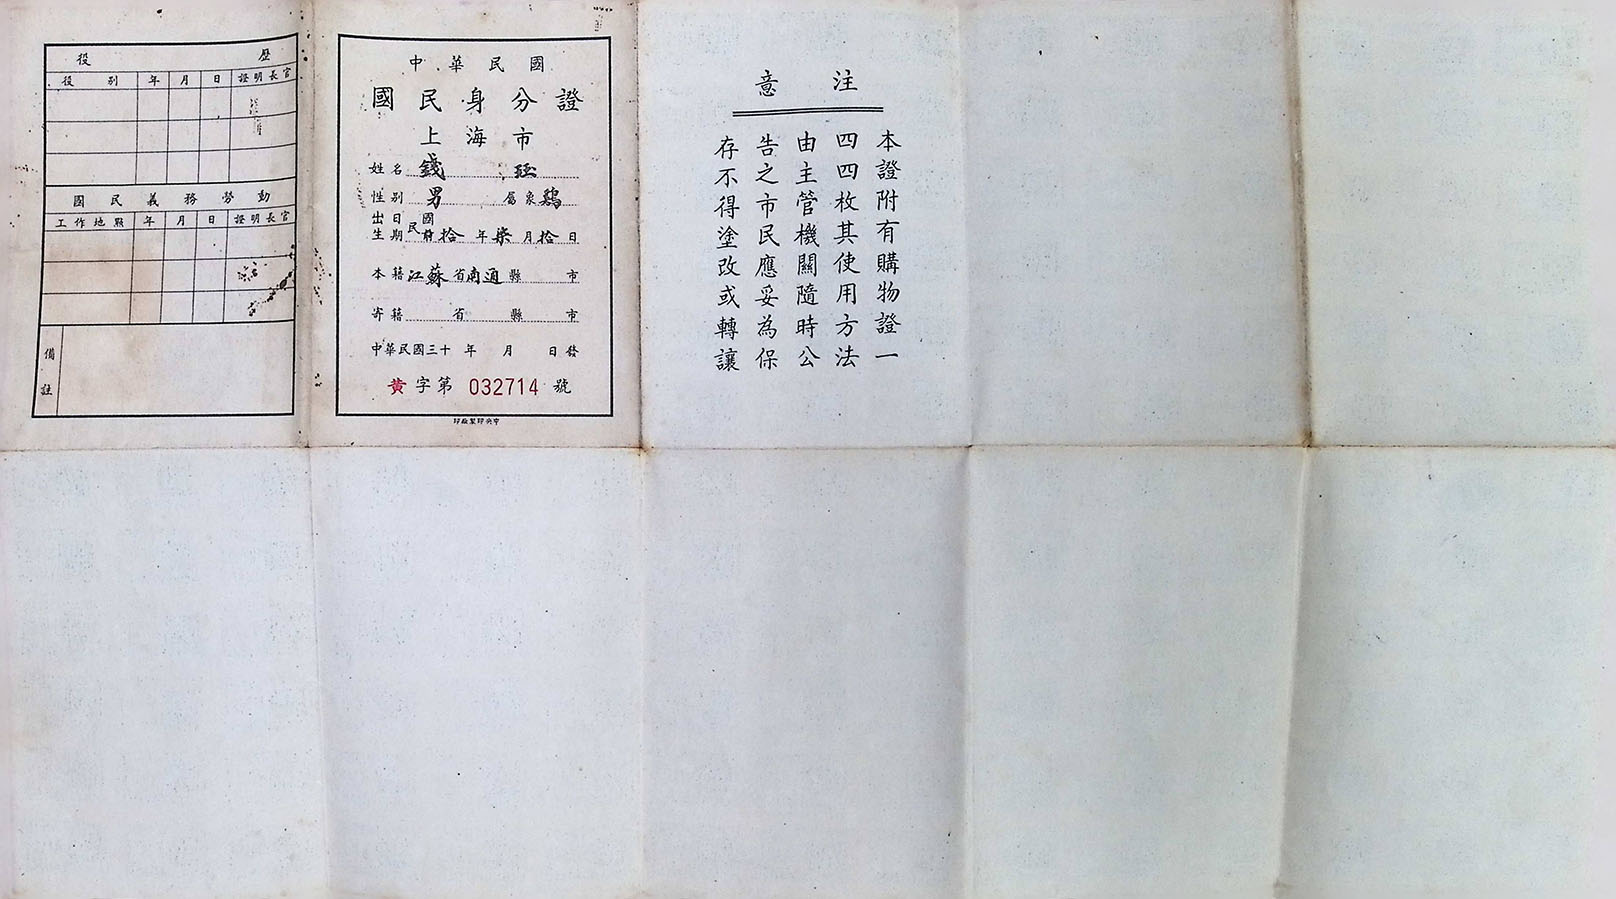 役歷
役別 年 月 日 證明長官
國民義務勞動
工作地點 年 月 日 證明長官
備註
中華民國
國民身分證
上海市
姓名 錢
性別 男 屬象 鷄
出生日期 民國前拾年柒月拾日
本籍 江蘇省南通縣 市
寄籍 省 縣 市
中華民國三十 年 月 日發
黄字第 032714 號
注意
本證附有購物證一
四四枚其使用方法
由主管機關隨時公
告之市民應妥為保
存不得塗改或轉讓